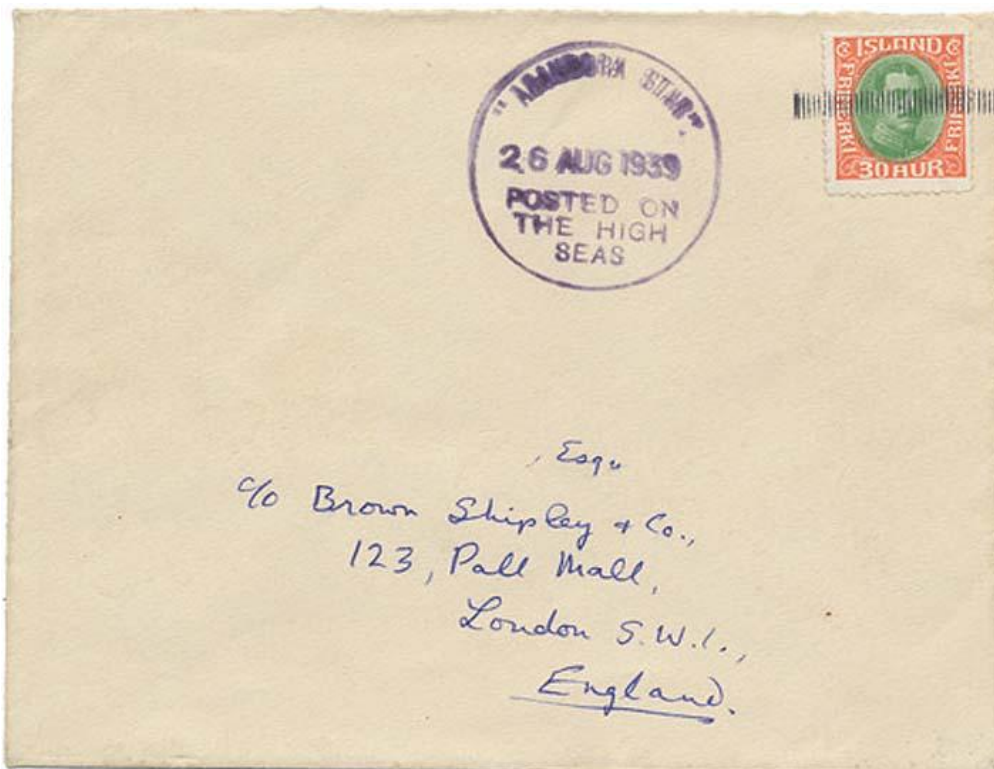 "ARANDORA STAR"
26 AUG 1939
POSTED ON
THE HIGH
SEAS
ISLAND
FRIMERKI
FRIMERKI
30 AUR
, Esqu
c/o Brown Shipley & Co.,
123, Pall Mall,
London S.W.1.,
England.